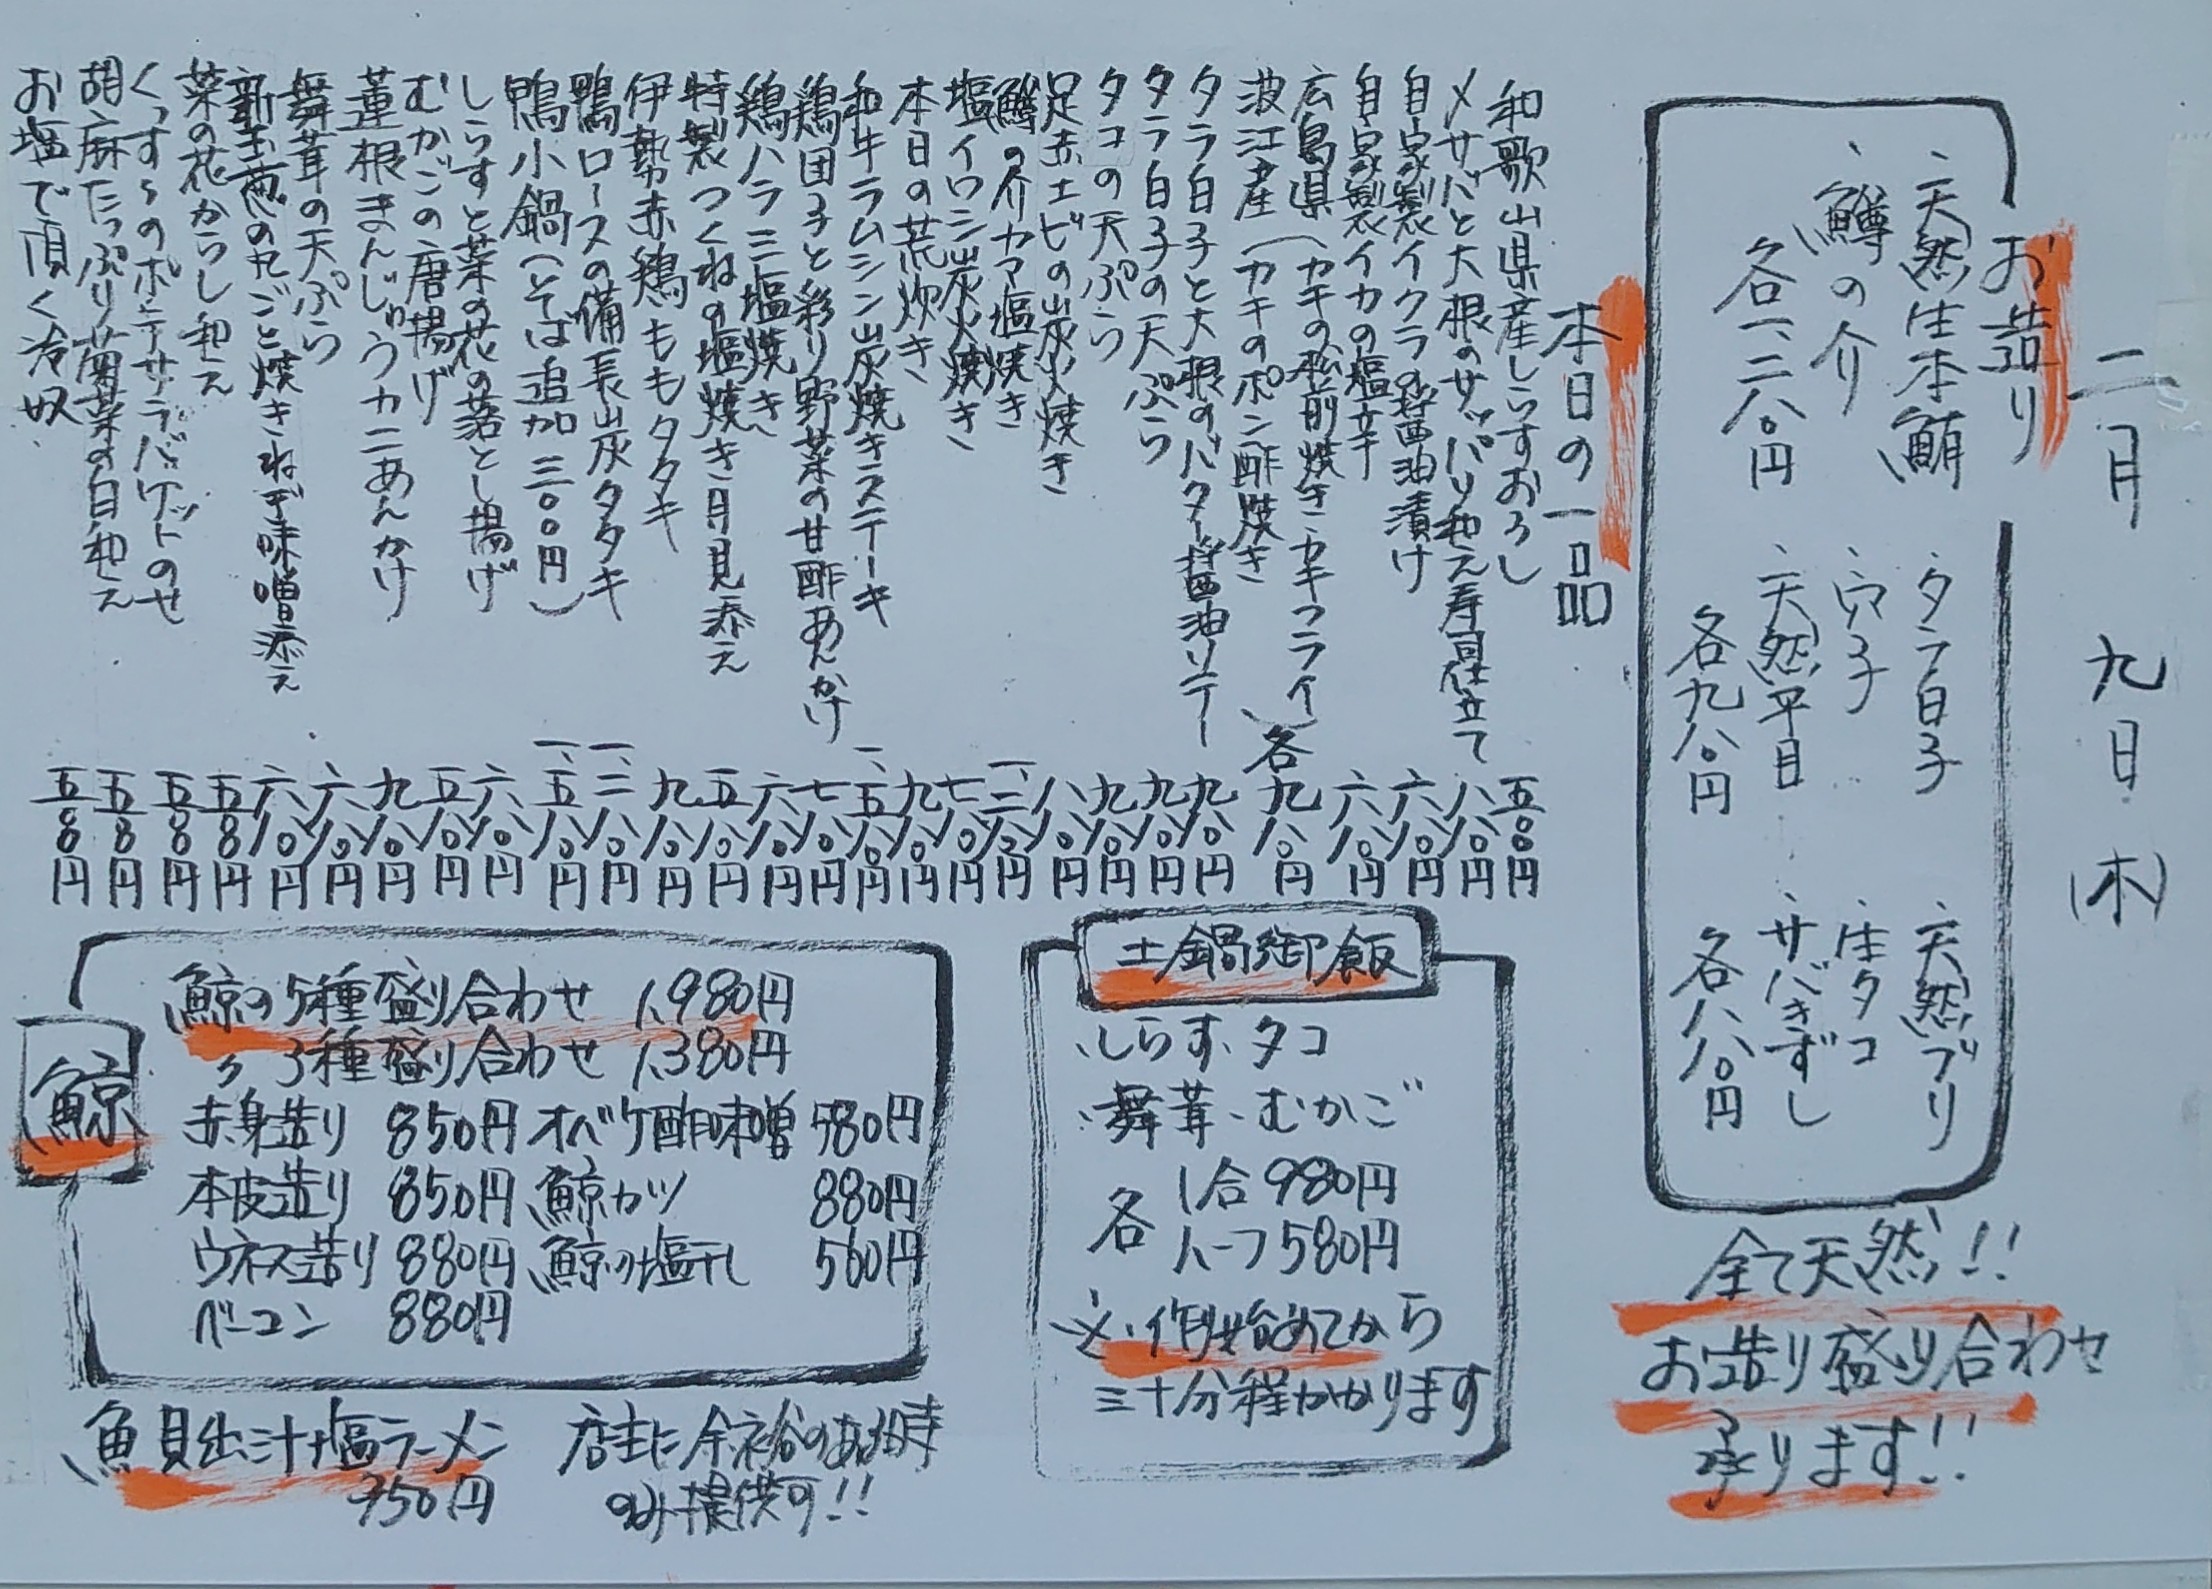 二月 九日 (木)
お造り
、天然生本鮪 、タラ白子 、天然ブリ
、鱒の介 、穴子 、生タコ
各一、二八〇円 、天然平目 、サバきずし
各九八〇円 各八八〇円
全て天然!!
お造り盛り合わせ
承ります!!
本日の一品
和歌山県産しらすおろし 五〇〇円
〆サバと大根のサッパリ和え寿司仕立て 八八〇円
自家製イクラの醤油漬け 六八〇円
自家製イカの塩辛 六八〇円
広島県(カキの松前焼き・カキフライ)各 九八〇円
波江産(カキのポン酢焼き
タラ白子と大根のバター醤油ソテー 九八〇円
タラ白子の天ぷら 九八〇円
タコの天ぷら 九八〇円
足赤エビの炭火焼き 八八〇円
鱒の介カマ塩焼き 一、二八〇円
塩イワシ炭火焼き 七八〇円
本日の荒炊き 九八〇円
和牛ラムシン炭焼きステーキ 一、五八〇円
鶏団子と彩り野菜の甘酢あんかけ 七八〇円
鶏ハラミ塩焼き 六八〇円
特製つくねの塩焼き月見添え 五八〇円
伊勢赤鶏ももタタキ 九八〇円
鴨ロースの備長炭タタキ 一、二八〇円
鴨小鍋(そば追加 三〇〇円) 一、五八〇円
しらすと菜の花の落とし揚げ 六八〇円
むかごの唐揚げ 五八〇円
蓮根まんじゅうカニあんかけ 九八〇円
舞茸の天ぷら 六八〇円
新玉葱の丸ごと焼きねぎ味噌添え 六八〇円
菜の花からし和え 五八〇円
くんすらのポテサラバゲットのせ 五八〇円
胡麻たっぷり菊菜の白和え 五八〇円
お塩で頂く冷奴 五八〇円
土鍋御飯
、しらす、タコ
、舞茸、むかご
各 1合980円
ハーフ580円
※、作り始めてから
三十分程かかります
鯨
鯨の5種盛り合わせ 1,980円
〃 3種盛り合わせ 1,380円
赤身造り 850円 オバケ酢味噌 580円
本皮造り 850円 鯨カツ 880円
ウネス造り 880円 鯨の塩干し 560円
ベーコン 880円
魚貝出汁塩ラーメン 店主に余裕のある時
750円 のみ提供可!!